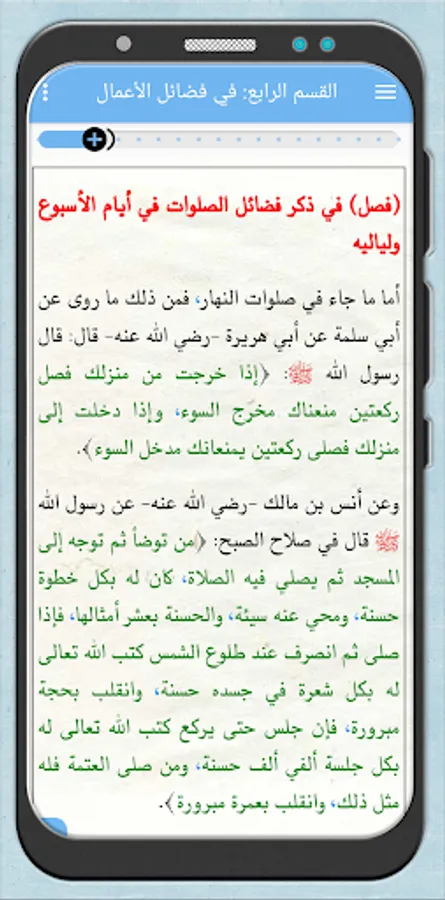 القسم الرابع: في فضائل الأعمال
(فصل) في ذكر فضائل الصلوات في أيام الأسبوع
ولياليه
أما ما جاء في صلوات النهار، فمن ذلك ما روى عن
أبي سلمة عن أبي هريرة -رضي الله عنه- قال: قال
رسول الله ﷺ: ﴿إذا خرجت من منزلك فصل
ركعتين منعناك مخرَج السوء، وإذا دخلت إلى
منزلك فصلى ركعتين يمنعانك مدخل السوء﴾.
وعن أنس بن مالك -رضي الله عنه- عن رسول الله
ﷺ قال في صلاح الصبح: ﴿من توضأ ثم توجه إلى
المسجد ثم يصلي فيه الصلاة، كان له بكل خطوة
حسنة، ومحي عنه سيئة، والحسنة بعشر أمثالها، فإذا
صلى ثم انصرف عند طلوع الشمس كتب الله تعالى
له بكل شعرة في جسده حسنة، وانقلب بحجة
مبرورة، فإن جلس حتى يركع كتب الله تعالى له
بكل جلسة ألفي ألف حسنة، ومن صلى العتمة فله
مثل ذلك، وانقلب بعمرة مبرورة﴾.